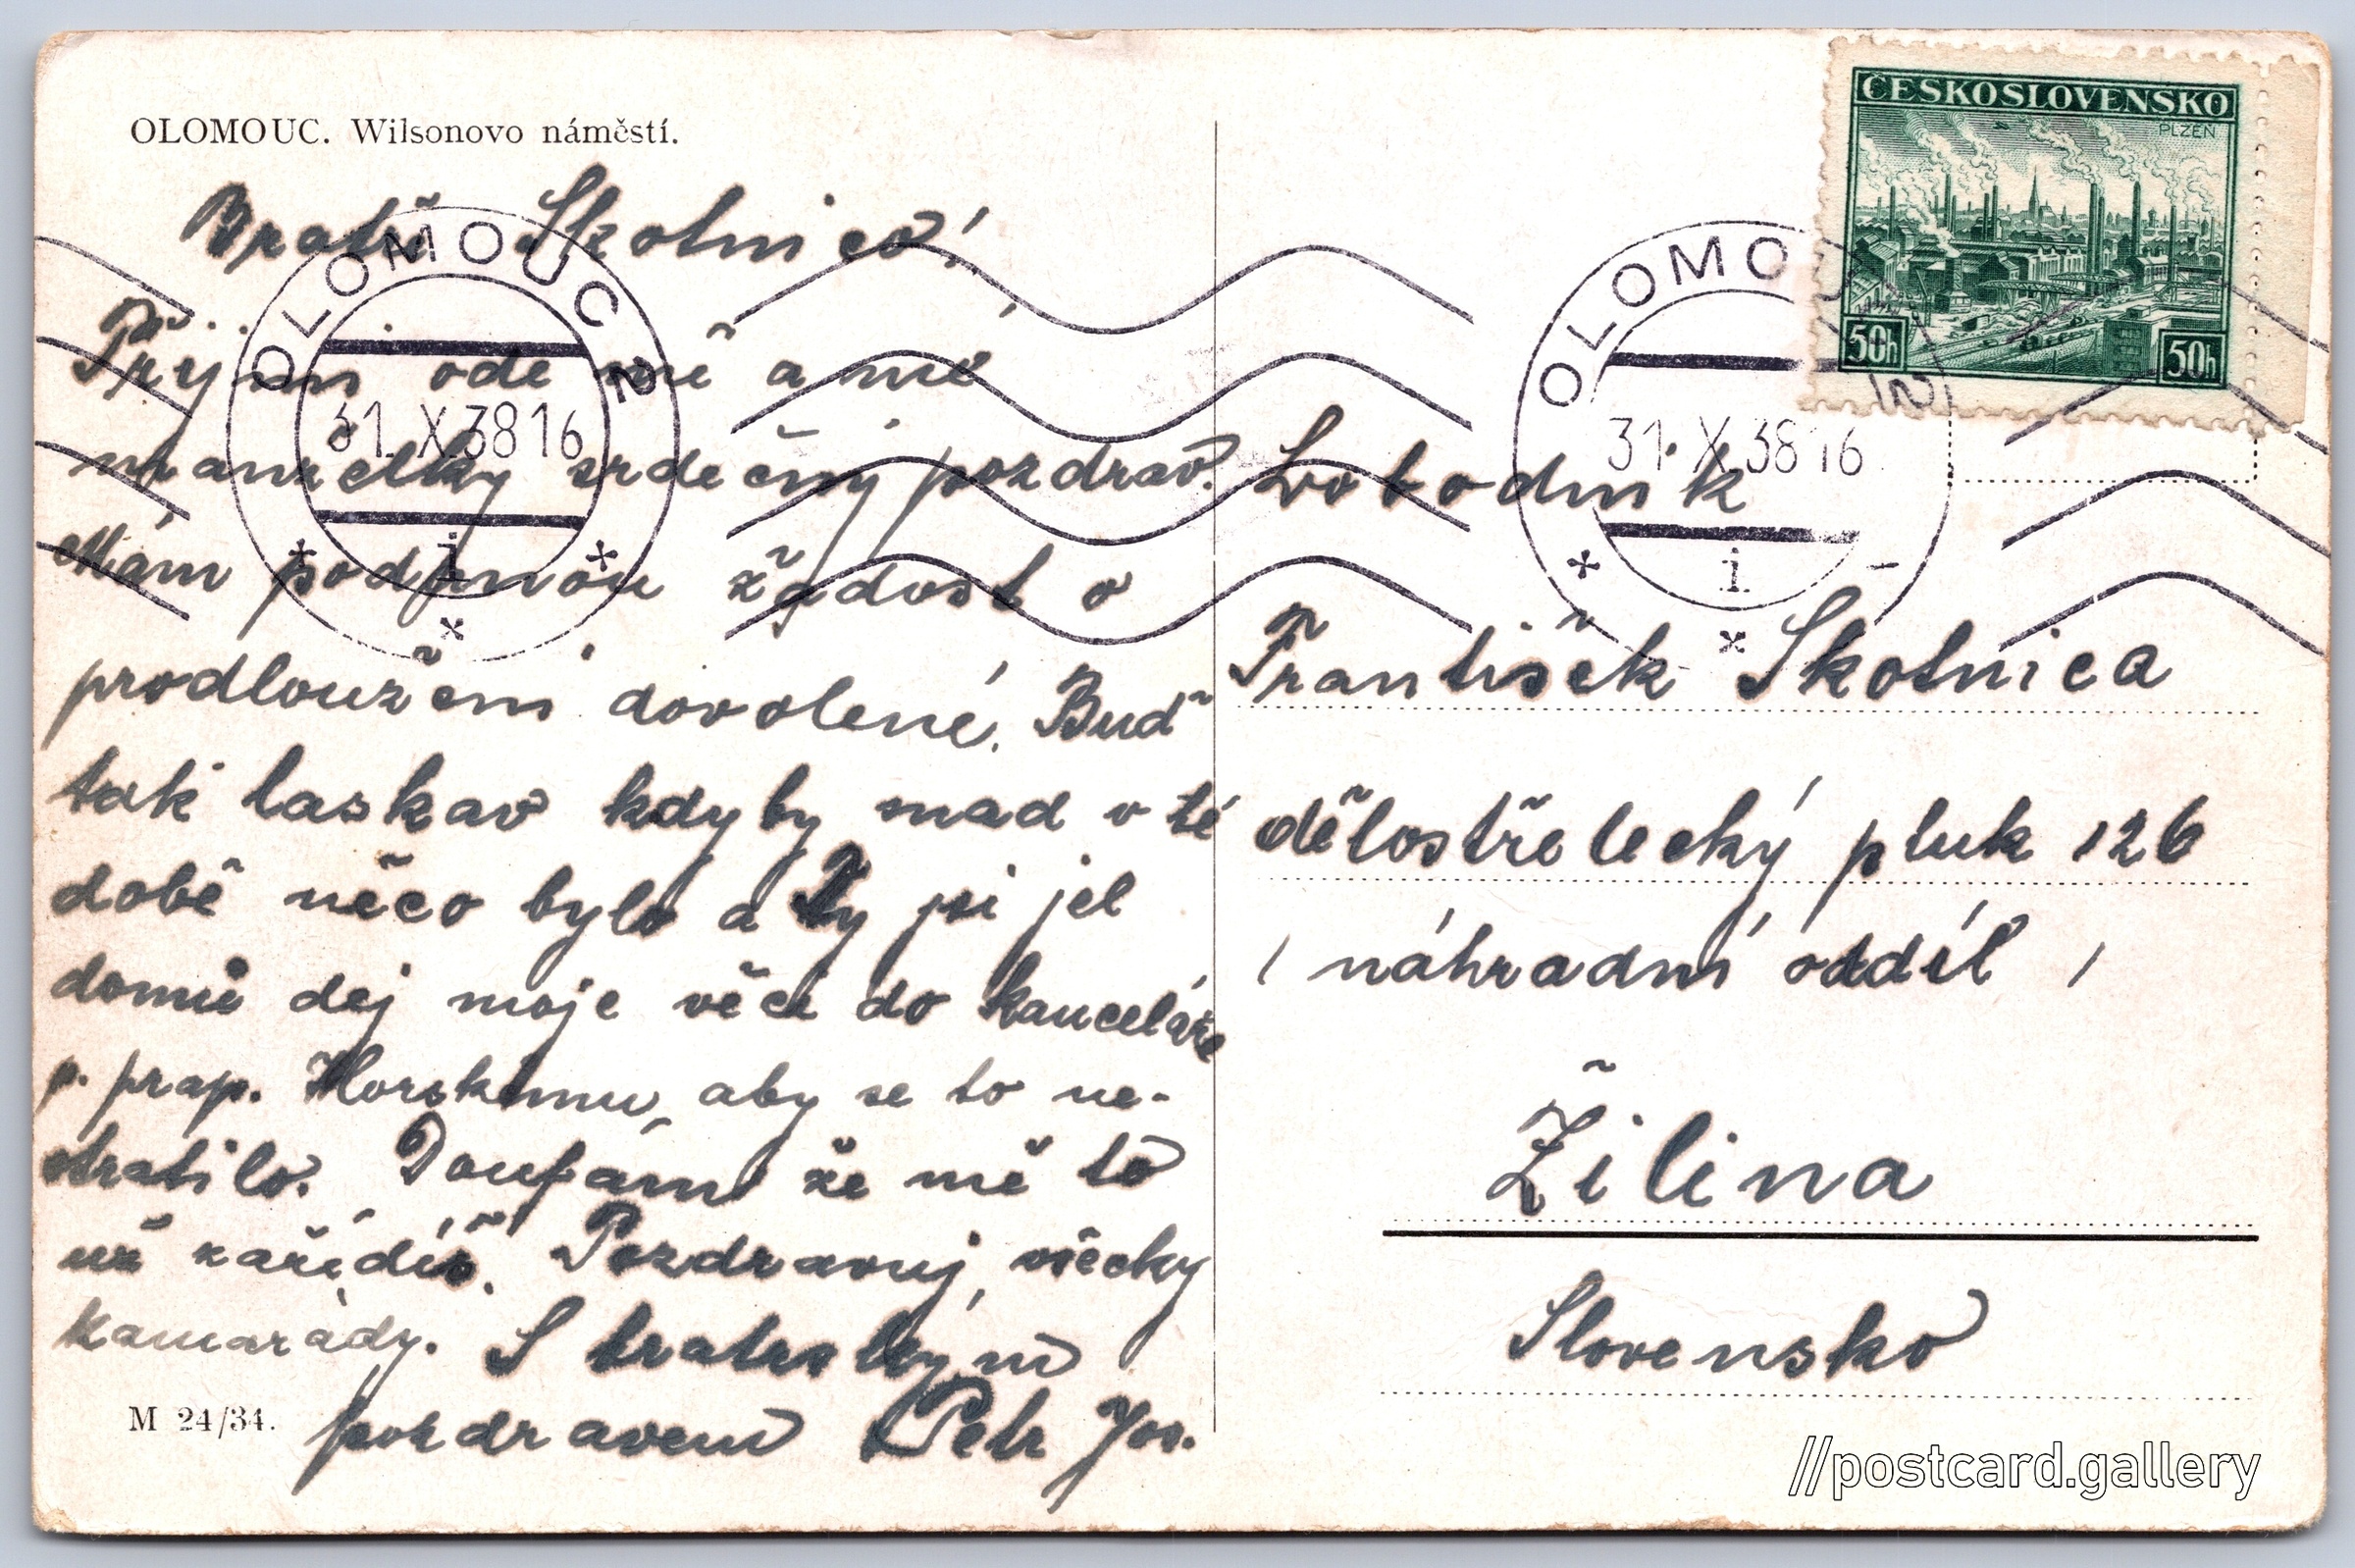 OLOMOUC. Wilsonovo náměstí.
Bratře Skotnico!
Přijmi ode mě a mé
manželky srdečný pozdrav.
Mám podanou žádost o
prodloužení dovolené. Buď
tak laskav kdyby snad v té
době něco bylo a Ty jsi jel
domů dej moje věci do kanceláře
p. prap. Horskému, aby se to ne-
stratilo. Doufám že mě to
už zařídíš. Pozdravuj všecky
kamarády. S bratrským
pozdravem Petr Jos.
M 24/34.
OLOMOUC 2
31.X.38 16
i
OLOMOUC 2
31.X.38 16
i
ČESKOSLOVENSKO
PLZEŇ
50h 50h
Svobodník
František Skotnica
dělostřelecký pluk 126
/ náhradní oddíl /
Žilina
Slovensko
//postcard.gallery